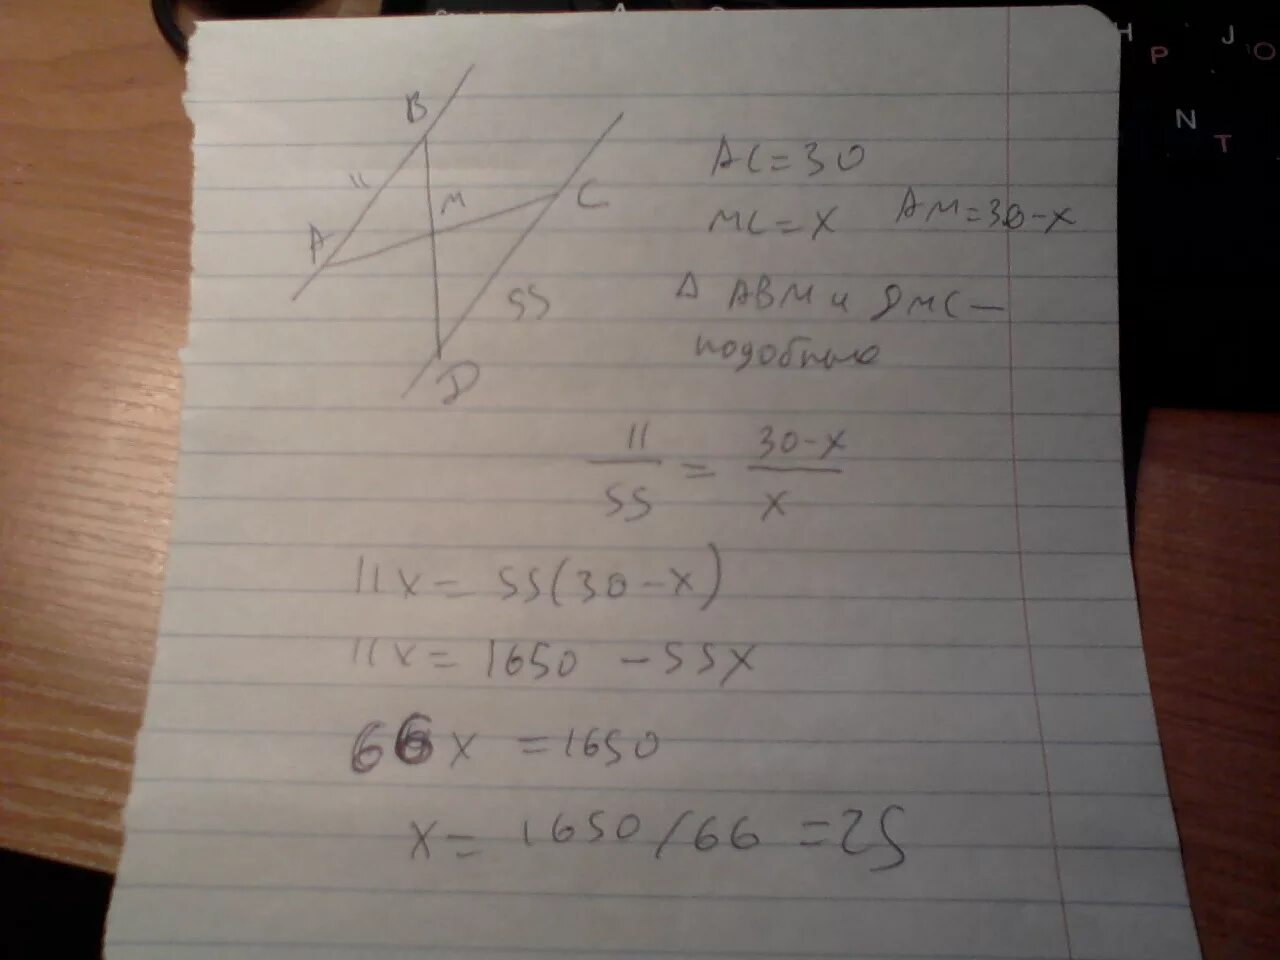 B
11
M
A
C
55
D
AC=30
MC=x AM=30-x
Δ ABM и DMC —
подобные
11/55 = 30-x/x
11x = 55(30-x)
11x = 1650 - 55x
66x = 1650
x = 1650/66 = 25
H
J
P
O
N
T